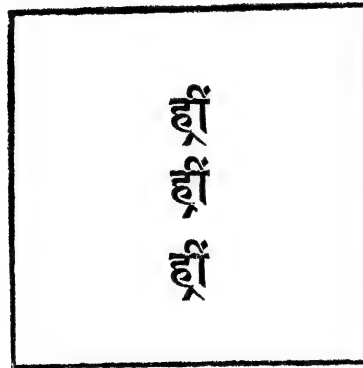 ह्रीं
ह्रीं
ह्रीं